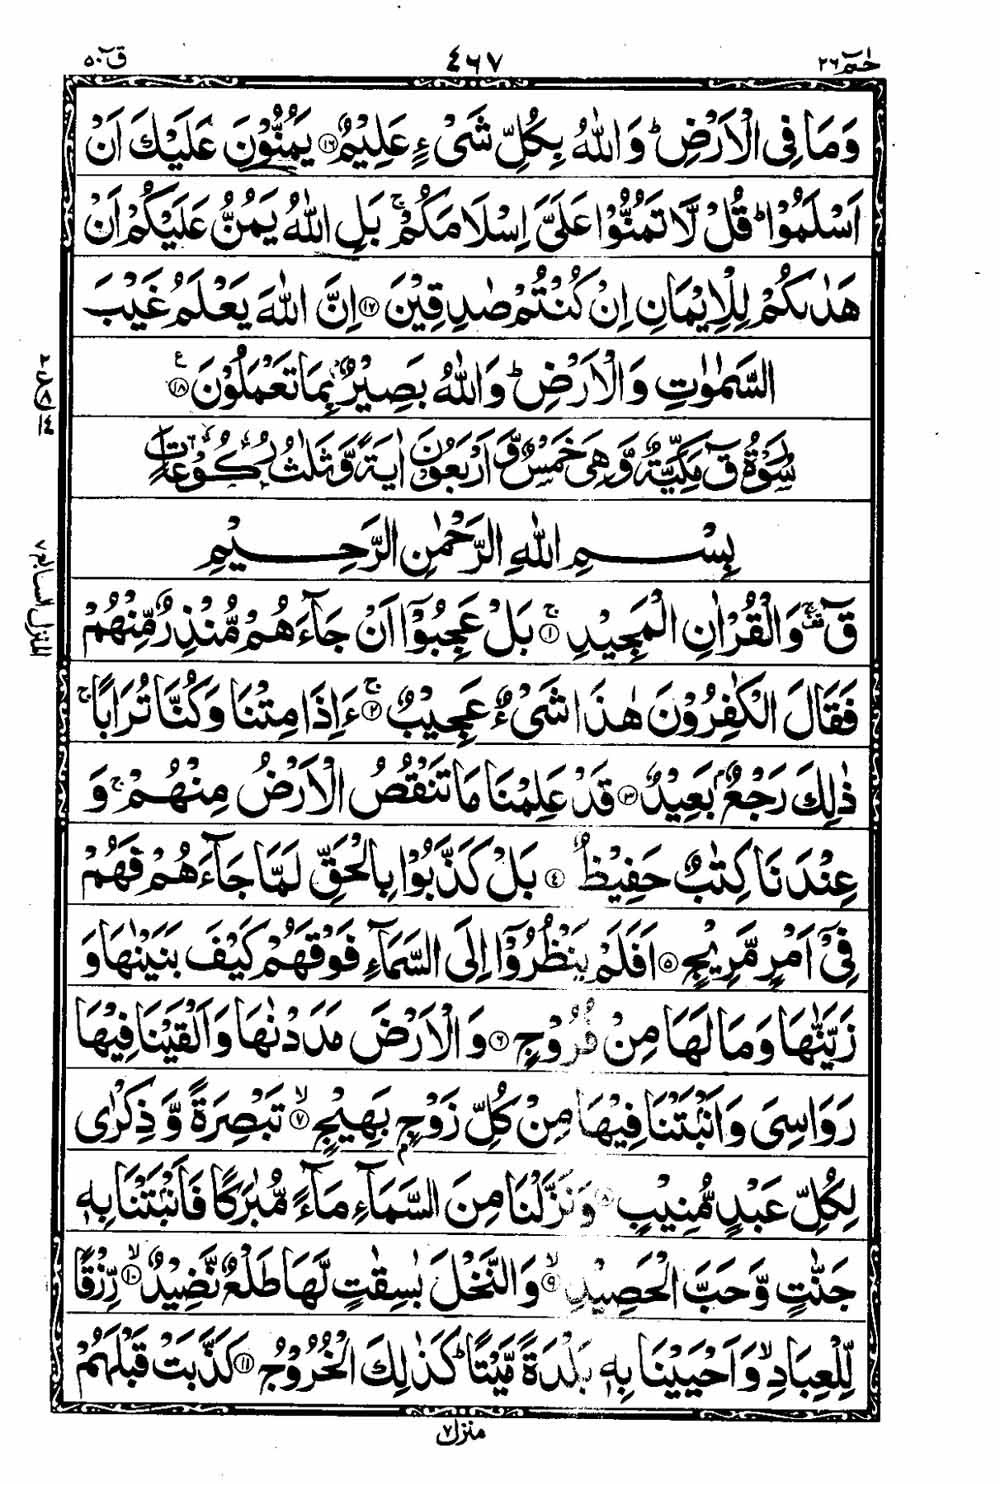 حٰمٓ ٢٦ ٤٦٧ قٓ ٥٠
وَمَا فِى الْاَرْضِ ؕ وَاللّٰهُ بِكُلِّ شَىْءٍ عَلِيْمٌ ۝١٦ يَمُنُّوْنَ عَلَيْكَ اَنْ
اَسْلَمُوْا ؕ قُلْ لَّا تَمُنُّوْا عَلَىَّ اِسْلَامَكُمْ ۚ بَلِ اللّٰهُ يَمُنُّ عَلَيْكُمْ اَنْ
هَدٰىكُمْ لِلْاِيْمَانِ اِنْ كُنْتُمْ صٰدِقِيْنَ ۝١٧ اِنَّ اللّٰهَ يَعْلَمُ غَيْبَ
السَّمٰوٰتِ وَالْاَرْضِ ؕ وَاللّٰهُ بَصِيْرٌۢ بِمَا تَعْمَلُوْنَ ۝١٨
سُوْرَةُ قٓ مَكِّيَّةٌ وَّهِىَ خَمْسٌ وَّاَرْبَعُوْنَ اٰيَةً وَّثَلٰثُ رُكُوْعَاتٍ
بِسْمِ اللّٰهِ الرَّحْمٰنِ الرَّحِيْمِ
قٓ ۚ وَالْقُرْاٰنِ الْمَجِيْدِ ۚ‏۝١ بَلْ عَجِبُوْۤا اَنْ جَآءَهُمْ مُّنْذِرٌ مِّنْهُمْ
فَقَالَ الْكٰفِرُوْنَ هٰذَا شَىْءٌ عَجِيْبٌ ۚ‏۝٢ ءَاِذَا مِتْنَا وَكُنَّا تُرَابًا ۚ
ذٰلِكَ رَجْعٌۢ بَعِيْدٌ ۝٣ قَدْ عَلِمْنَا مَا تَنْقُصُ الْاَرْضُ مِنْهُمْ ۚ وَ
عِنْدَنَا كِتٰبٌ حَفِيْظٌ ۝٤ بَلْ كَذَّبُوْا بِالْحَقِّ لَمَّا جَآءَهُمْ فَهُمْ
فِىْۤ اَمْرٍ مَّرِيْجٍ ۝٥ اَفَلَمْ يَنْظُرُوْۤا اِلَى السَّمَآءِ فَوْقَهُمْ كَيْفَ بَنَيْنٰهَا وَ
زَيَّنّٰهَا وَمَا لَهَا مِنْ فُرُوْجٍ ۝٦ وَالْاَرْضَ مَدَدْنٰهَا وَاَلْقَيْنَا فِيْهَا
رَوَاسِىَ وَاَنْۢبَتْنَا فِيْهَا مِنْ كُلِّ زَوْجٍۢ بَهِيْجٍ ۙ‏۝٧ تَبْصِرَةً وَّذِكْرٰى
لِكُلِّ عَبْدٍ مُّنِيْبٍ ۝٨ وَنَزَّلْنَا مِنَ السَّمَآءِ مَآءً مُّبٰرَكًا فَاَنْۢبَتْنَا بِهٖ
جَنّٰتٍ وَّحَبَّ الْحَصِيْدِ ۙ‏۝٩ وَالنَّخْلَ بٰسِقٰتٍ لَّهَا طَلْعٌ نَّضِيْدٌ ۙ‏۝١٠ رِّزْقًا
لِّلْعِبَادِ ۙ وَاَحْيَيْنَا بِهٖ بَلْدَةً مَّيْتًا ؕ كَذٰلِكَ الْخُرُوْجُ ۝١١ كَذَّبَتْ قَبْلَهُمْ
منزل ٧
المنزل السابع ٧